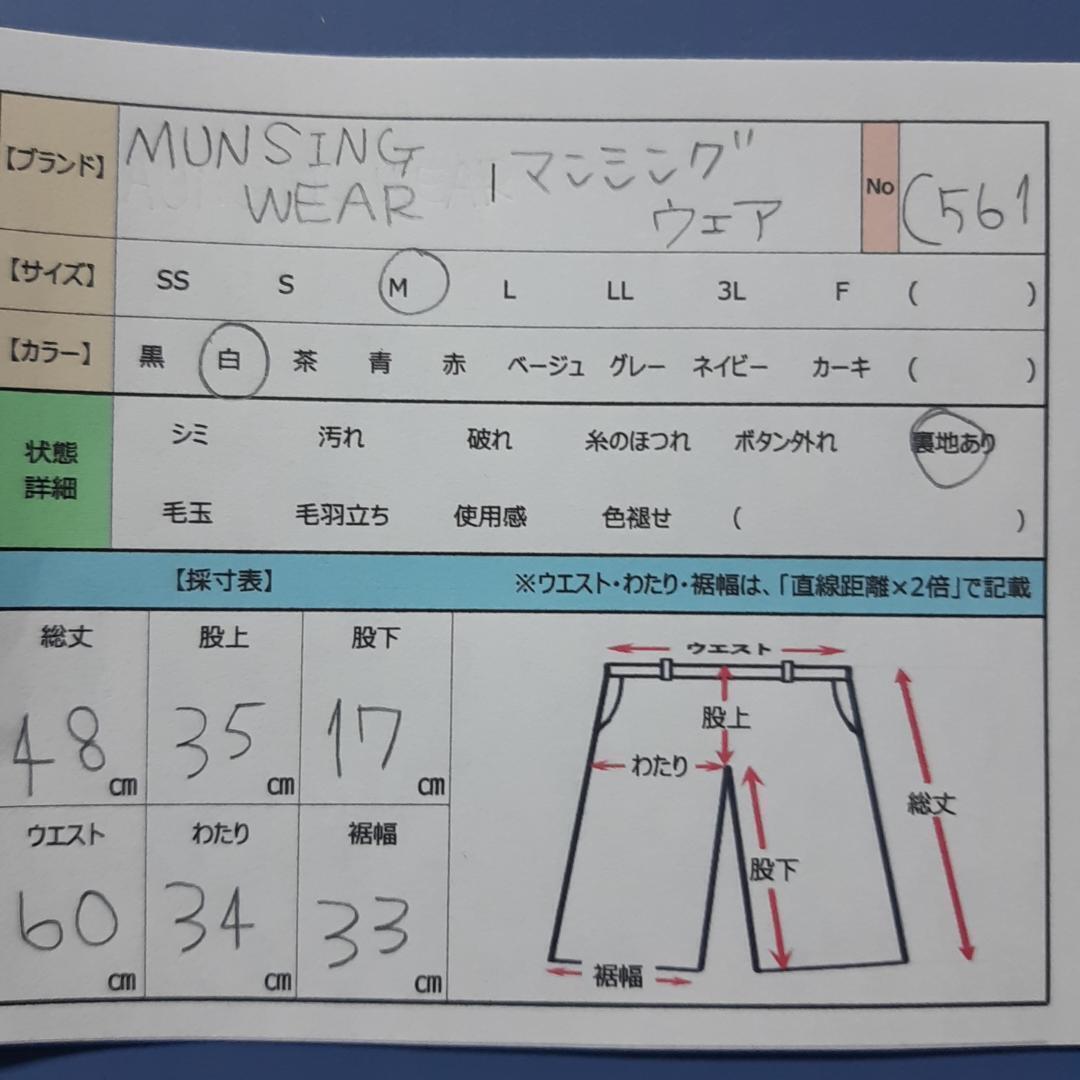 【ブランド】 MUNSING WEAR | マンシング ウェア No C561
【サイズ】 SS S M L LL 3L F ( )
【カラー】 黒 白 茶 青 赤 ベージュ グレー ネイビー カーキ ( )
状態詳細 シミ 汚れ 破れ 糸のほつれ ボタン外れ 裏地あり
毛玉 毛羽立ち 使用感 色褪せ ( )
【採寸表】 ※ウエスト・わたり・裾幅は、「直線距離×2倍」で記載
総丈 股上 股下
48cm 35cm 17cm
ウエスト わたり 裾幅
60cm 34cm 33cm
ウエスト
股上
わたり
総丈
股下
裾幅